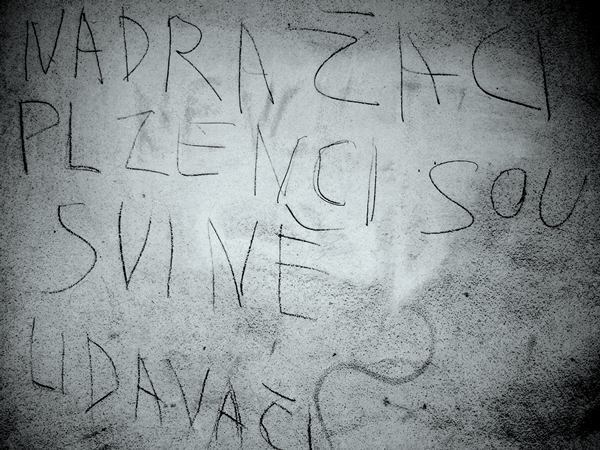 NADRAŽACI
PLZENCI SOU
SVINĚ
UDAVAČI